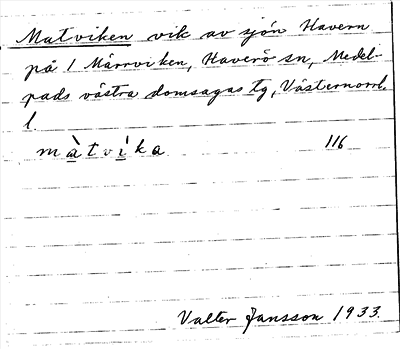 Matviken vik av sjön Havern
på 1 Mårrviken, Haverö sn, Medel-
pads västra domsagas tg, Västernorrl.
l
màtvìka 116
Valter Jansson 1933.